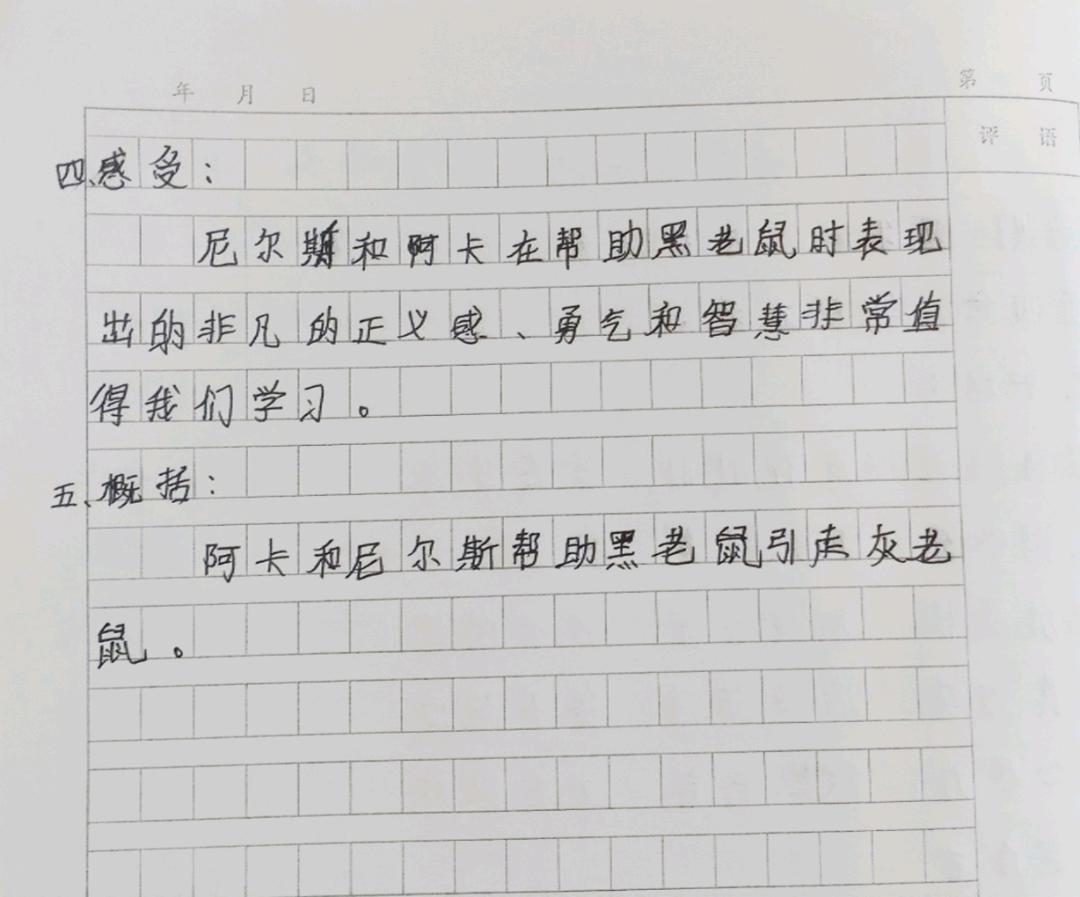 年 月 日
第 页
评 语
四、感受：
尼尔斯和阿卡在帮助黑老鼠时表现
出的非凡的正义感、勇气和智慧非常值
得我们学习。
五、概括：
阿卡和尼尔斯帮助黑老鼠引走灰老
鼠。